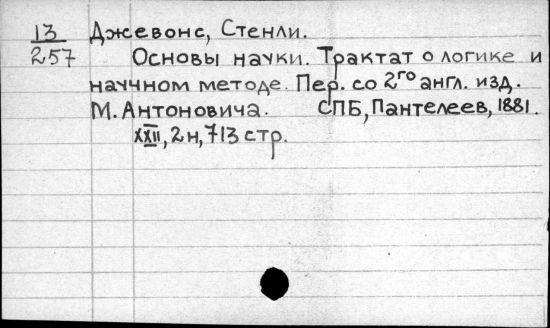 13 Джевонс, Стенли.
257 Основы науки. Трактат о логике и
научном методе. Пер. со 2го англ. изд.
М. Антоновича. СПБ, Пантелеев, 1881.
XXII, 2н, 713 стр.